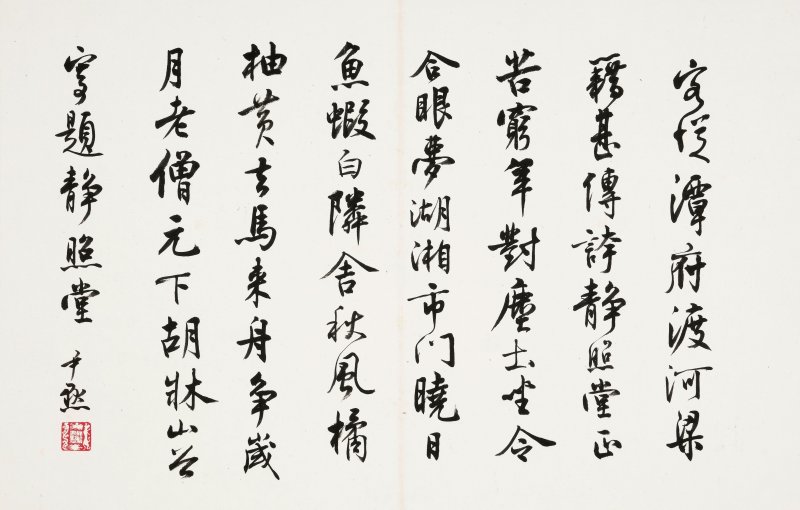 客從潭府渡河梁
籍甚傳誇静照堂正
苦窮年對塵土坐令
合眼夢湖湘市門曉日
魚蝦白隣舍秋風橘
柚黄去馬來舟爭歲
月老僧元下胡牀山谷
寄題静照堂 尹默